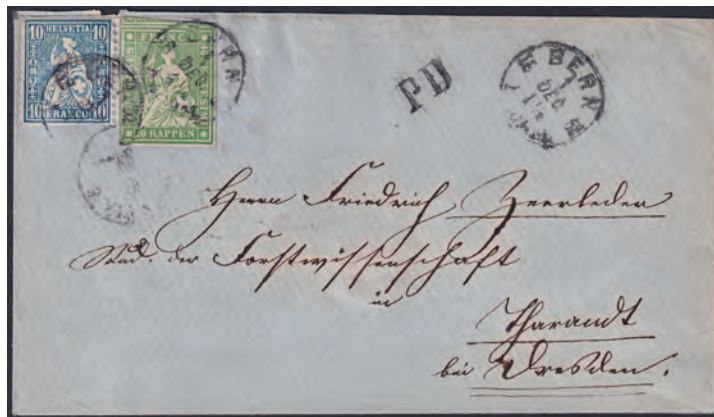 10 HELVETIA 10
10 FRANCO 10
FRANCO
RAPPEN
PD
BERN
DEC
Herrn Friedrich Zeerleder
Stud. der Forstwissenschaft
in
Tharandt
bei Dresden.